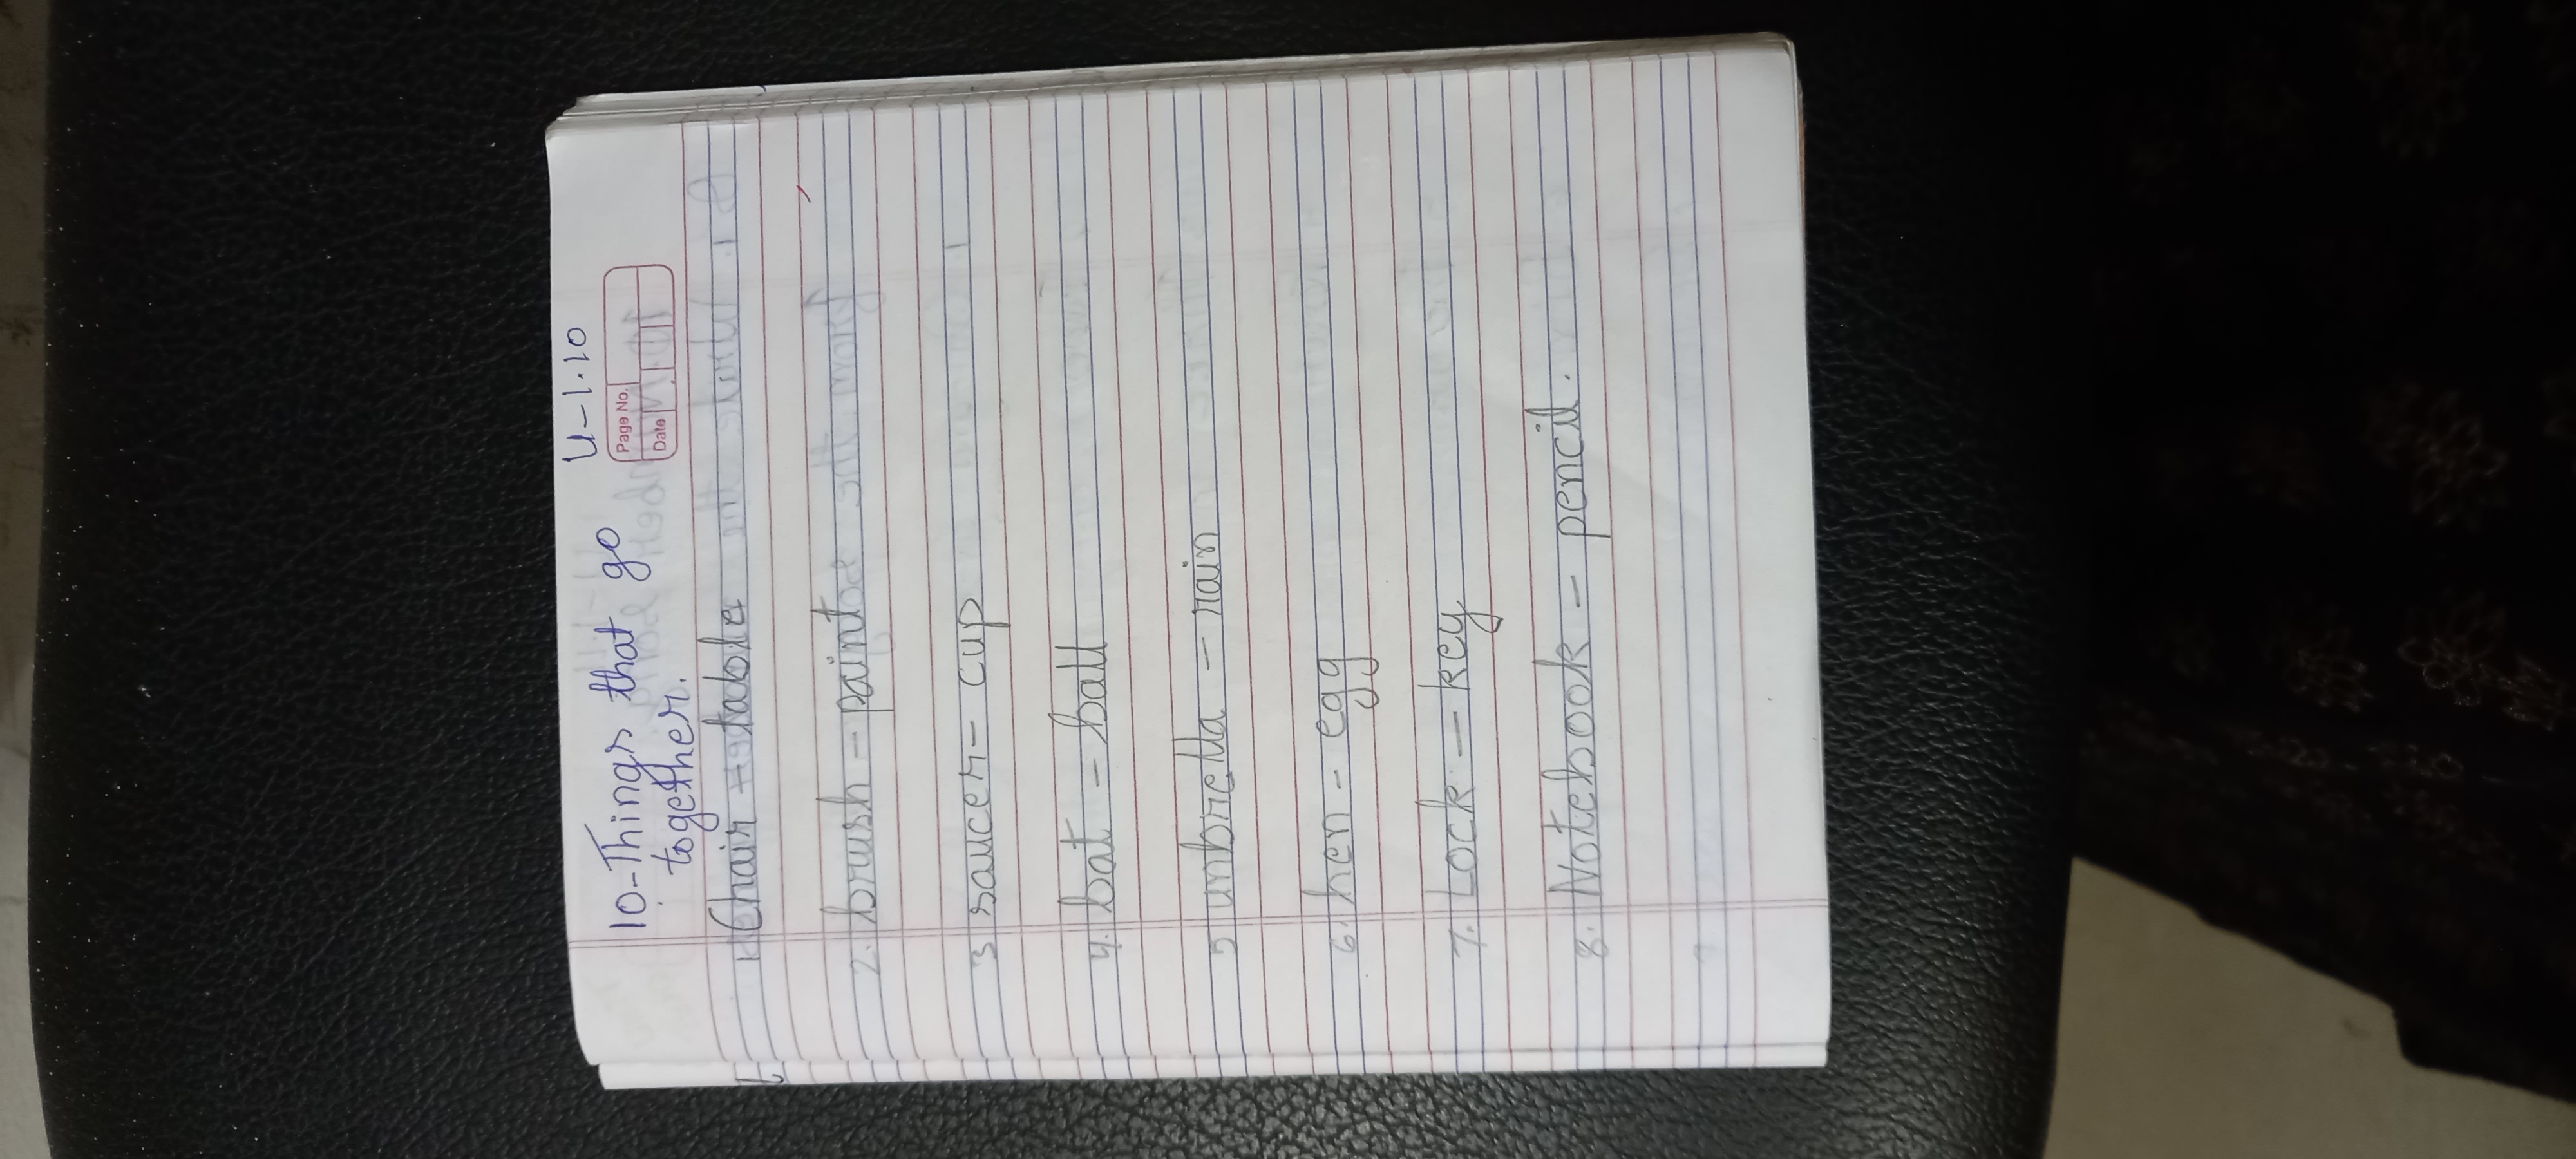 U-1.10
10-Things that go
together.
Page No.
Date
1. Chair - table
2. brush - paint
3 saucer - cup
4. bat - ball
5 unbrella - rain
6. hen - egg
7. Lock - key
8. Notebook - pencil.
9